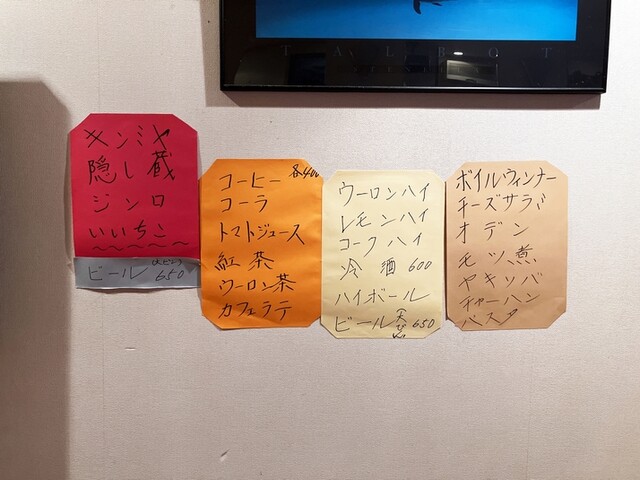 TALBOT
キンミヤ
隠し蔵
ジンロ
いいちこ
ビール (大ビン) 650
コーヒー 各400
コーラ
トマトジュース
紅茶
ウーロン茶
カフェラテ
ウーロンハイ
レモンハイ
コークハイ
冷酒 600
ハイボール
ビール (大びん) 650
ボイルウィンナー
チーズサラダ
オデン
モツ煮
ヤキソバ
チャーハン
パスタ